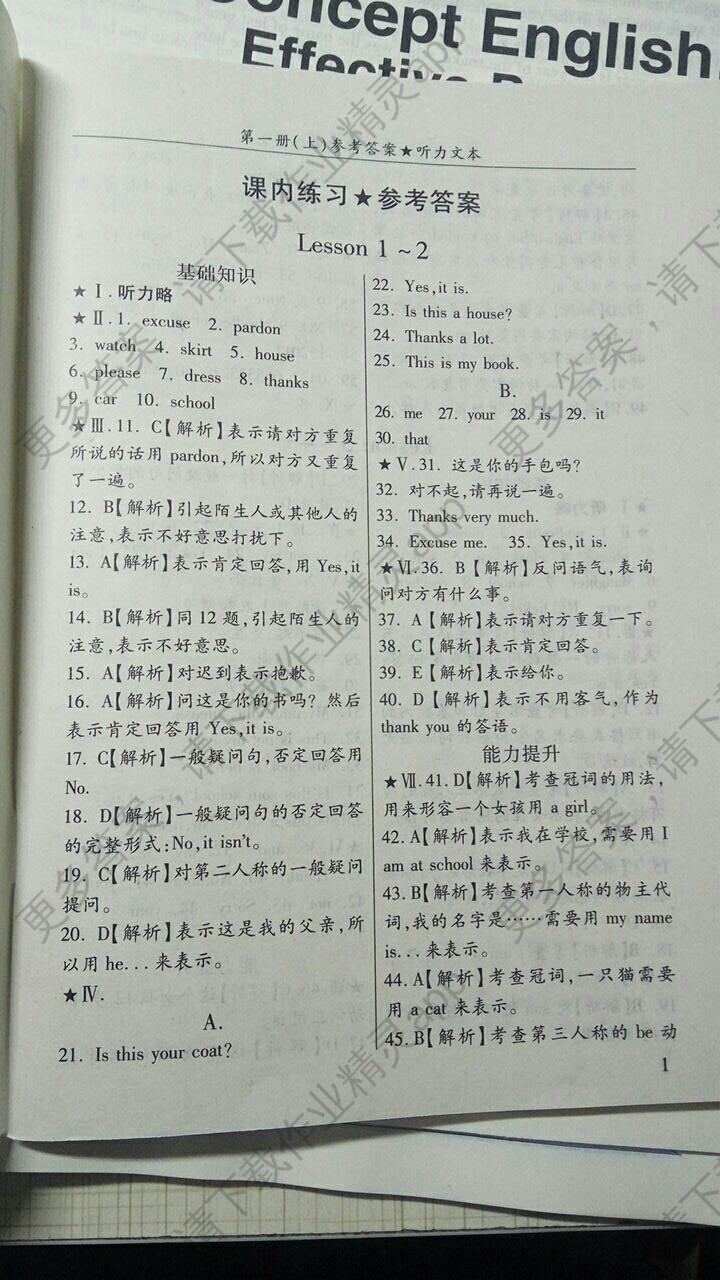 Concept English
第一册(上)参考答案★听力文本
课内练习★参考答案
Lesson 1～2
基础知识
★Ⅰ.听力略
★Ⅱ.1. excuse 2. pardon
3. watch 4. skirt 5. house
6. please 7. dress 8. thanks
9. car 10. school
★Ⅲ.11. C【解析】表示请对方重复
所说的话用 pardon,所以对方又重复
了一遍。
12. B【解析】引起陌生人或其他人的
注意,表示不好意思打扰下。
13. A【解析】表示肯定回答,用 Yes,it
is。
14. B【解析】同12题,引起陌生人的
注意,表示不好意思。
15. A【解析】对迟到表示抱歉。
16. A【解析】问这是你的书吗? 然后
表示肯定回答用 Yes,it is。
17. C【解析】一般疑问句,否定回答用
No.
18. D【解析】一般疑问句的否定回答
的完整形式:No,it isn't。
19. C【解析】对第二人称的一般疑问
提问。
20. D【解析】表示这是我的父亲,所
以用 he... 来表示。
★Ⅳ.
A.
21. Is this your coat?
22. Yes,it is.
23. Is this a house?
24. Thanks a lot.
25. This is my book.
B.
26. me 27. your 28. is 29. it
30. that
★Ⅴ.31. 这是你的手包吗?
32. 对不起,请再说一遍。
33. Thanks very much.
34. Excuse me. 35. Yes,it is.
★Ⅵ.36. B【解析】反问语气,表询
问对方有什么事。
37. A【解析】表示请对方重复一下。
38. C【解析】表示肯定回答。
39. E【解析】表示给你。
40. D【解析】表示不用客气,作为
thank you 的答语。
能力提升
★Ⅶ.41. D【解析】考查冠词的用法,
用来形容一个女孩用 a girl。
42. A【解析】表示我在学校,需要用 I
am at school 来表示。
43. B【解析】考查第一人称的物主代
词,我的名字是……需要用 my name
is... 来表示。
44. A【解析】考查冠词,一只猫需要
用 a cat 来表示。
45. B【解析】考查第三人称的 be 动
1
更多答案，请下载作业精灵app
更多答案，请下载作业精灵app
更多答案，请下载作业精灵app
更多答案，请下载作业精灵app